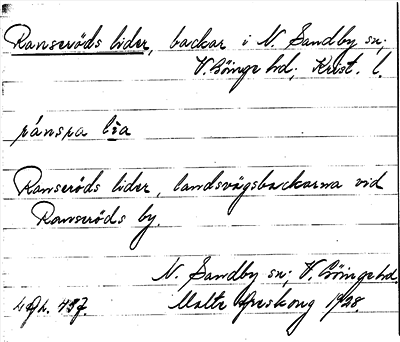 Ranseröds lider, backar i N. Sandby sn;
V. Göinge hd; Krist. l.
ránsra lia
Ranseröds lider, landsvägsbackarna vid
Ranseröds by.
N. Sandby sn; V. Göinge hd.
Malte Areskoug 1928.